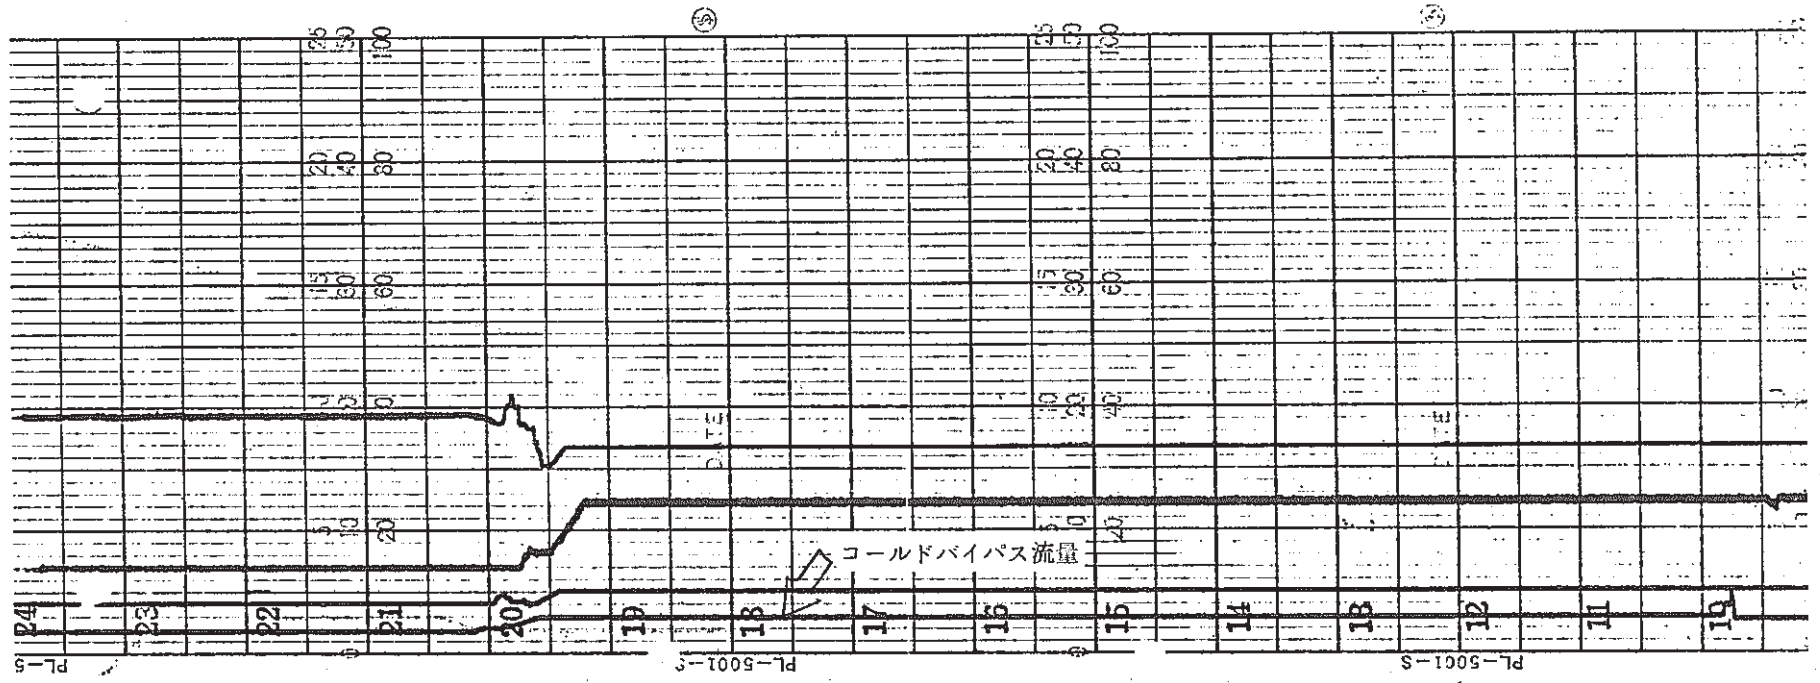 25
50
100
25
50
100
20
40
80
20
40
80
15
30
60
15
30
60
10
20
40
DATE
5
10
20
20
コールドバイパス流量
24 23 22 21 20 19 18 17 16 15 14 13 12 11 10
0
0
PL-5
PL-5001-S
PL-5001-S